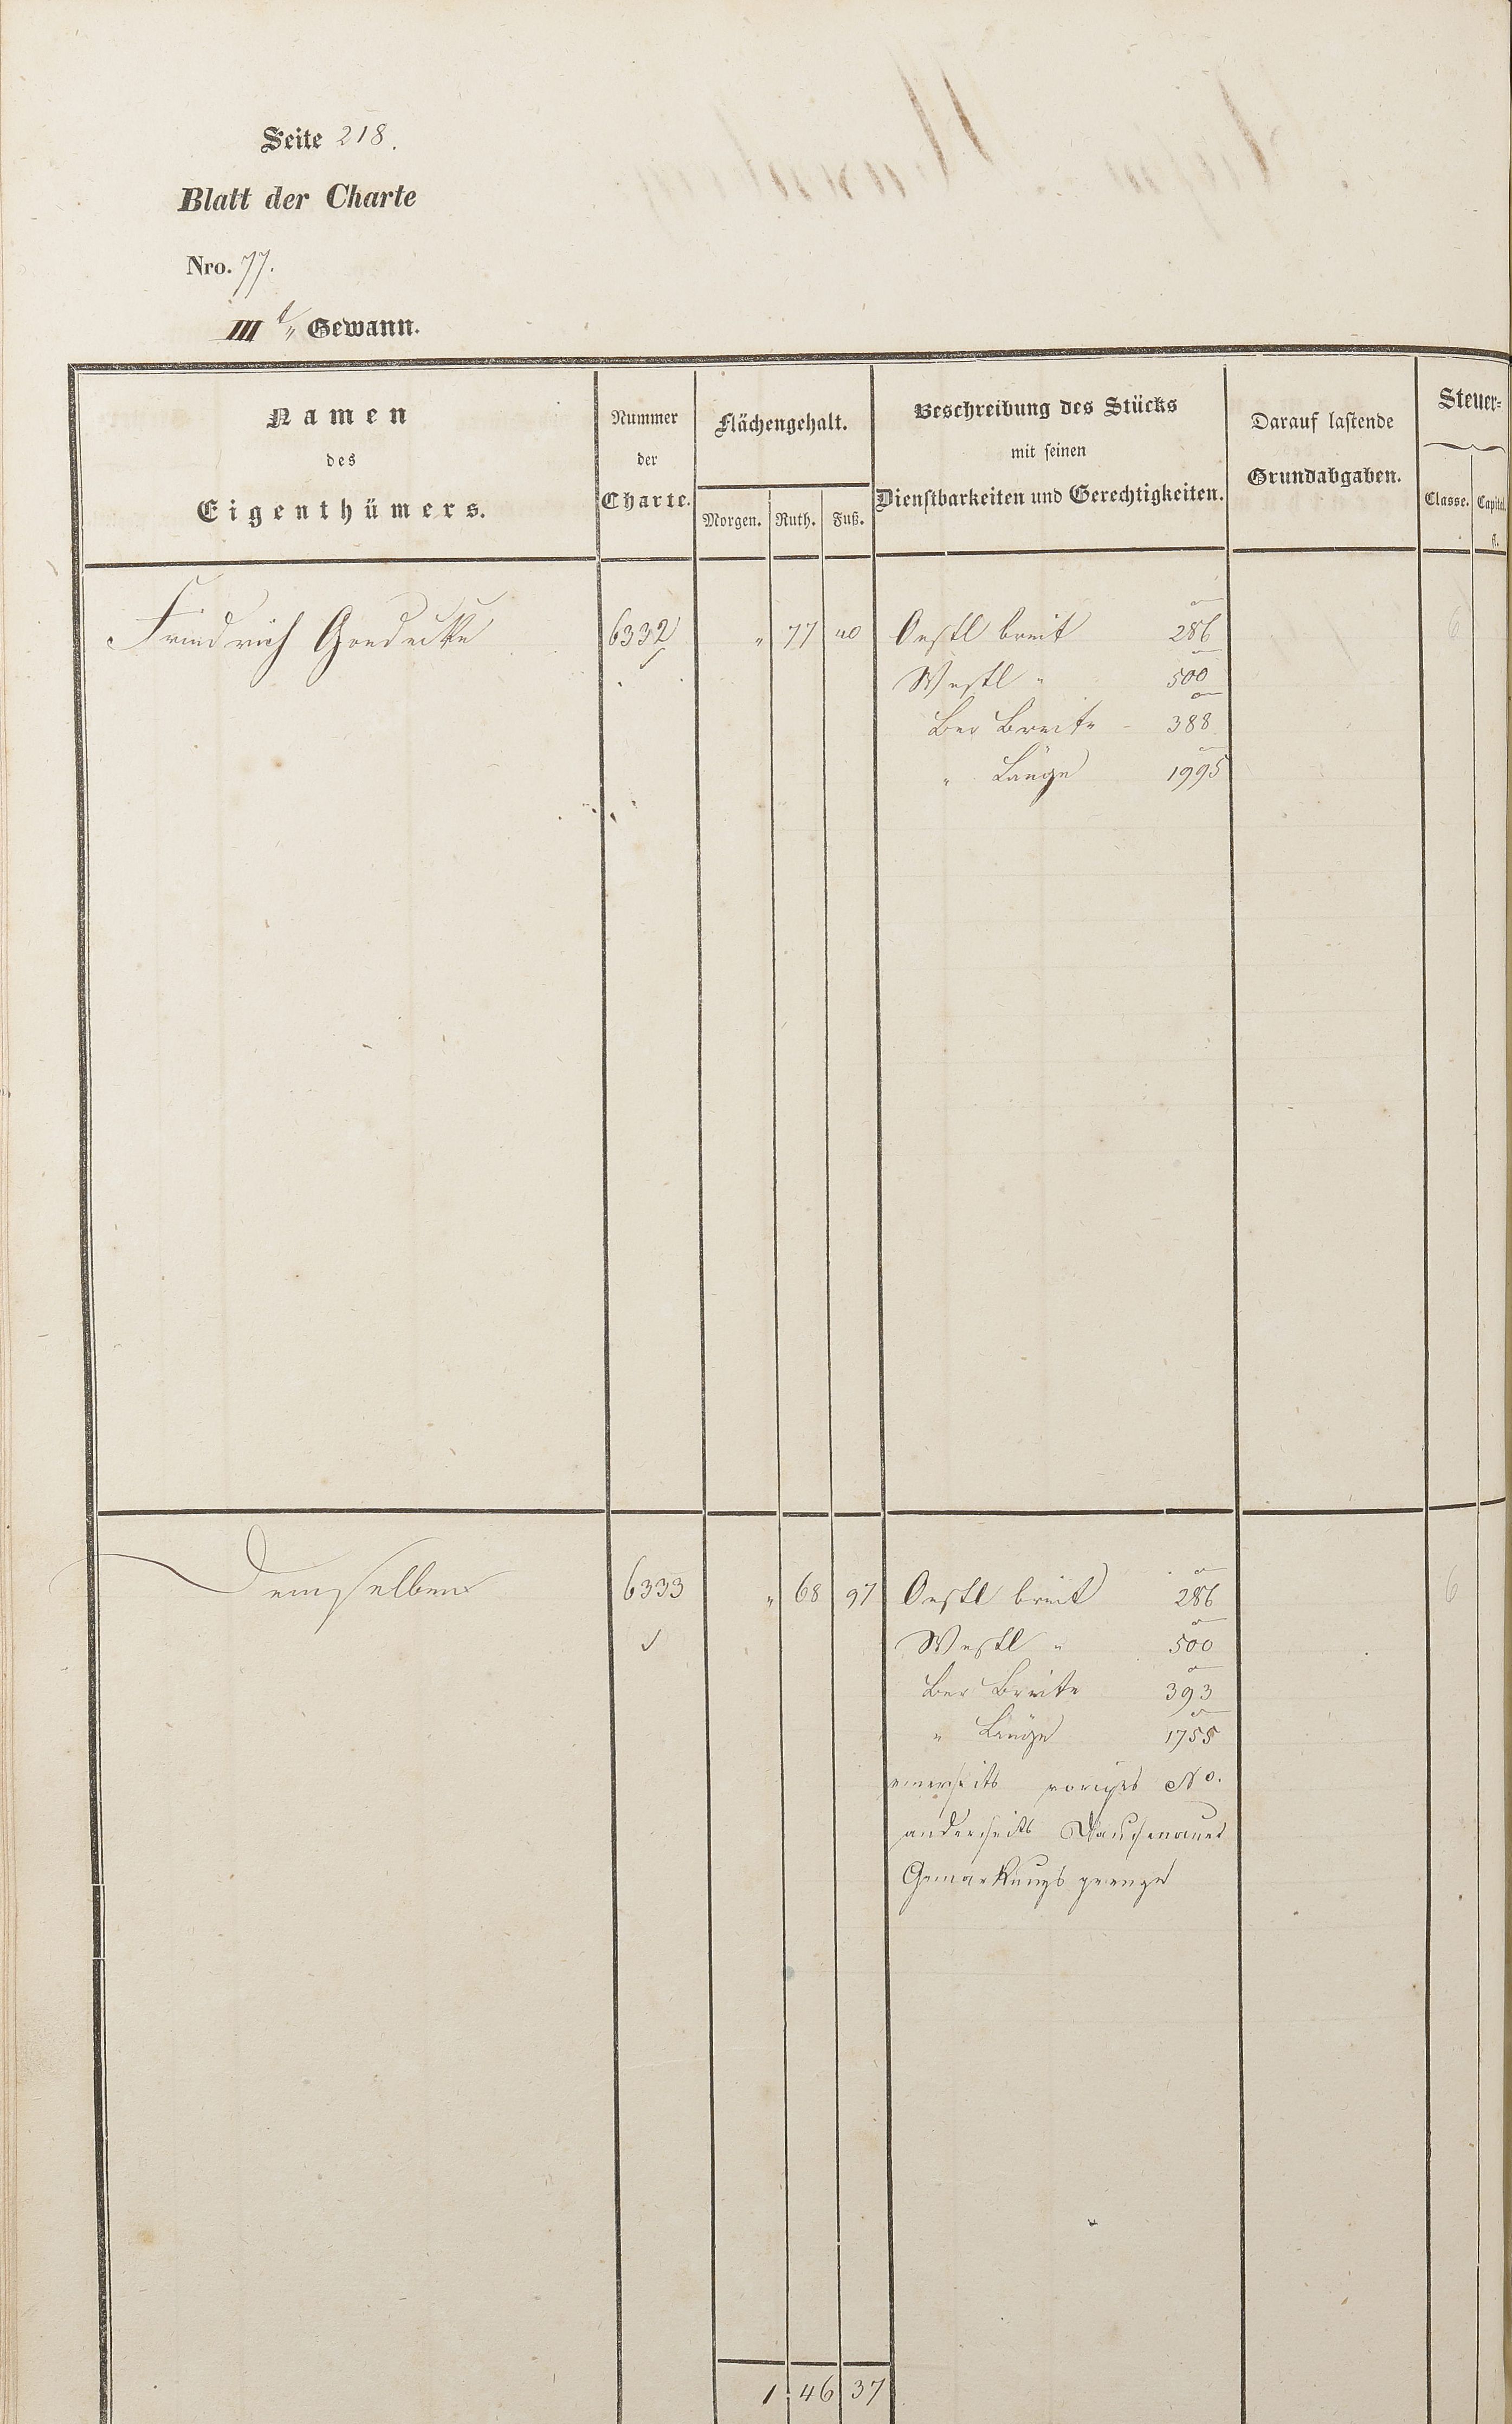 Seite 218.
Blatt der Charte
Nro. 77.
III t/„ Gewann.
Namen
des
Eigenthümers.
Nummer
der
Charte.
Flächengehalt.
Morgen. Ruth. Fuß.
Beschreibung des Stücks
mit seinen
Dienstbarkeiten und Gerechtigkeiten.
Darauf lastende
Grundabgaben.
Steuer-
Classe. Capital.
fl.
Friedrich Goedecke 6332 „ 77 40 Oestl breit 286 6
Westl „ 500
Ber Breite - 388
„ Länge 1995
Demselben 6333 „ 68 97 Oestl breit 286 6
Westl „ 500
Ber Breite 393
„ Länge 1755
einerseits voriges No.
anderseits
Gemarkungs grenze
1 46 37